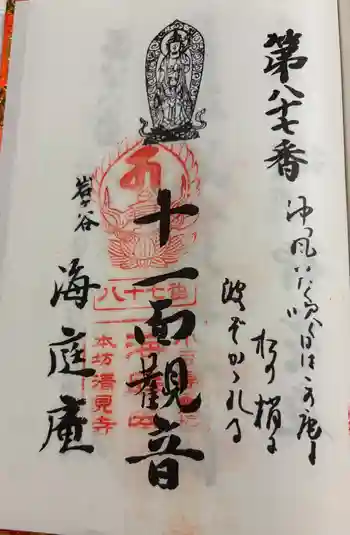 第八十七番
沖風いたく吹く日はこの庵も
松の梢に
波ぞかゝれる
十一面觀音
岩谷
海庭庵
八十七番
本坊清見寺